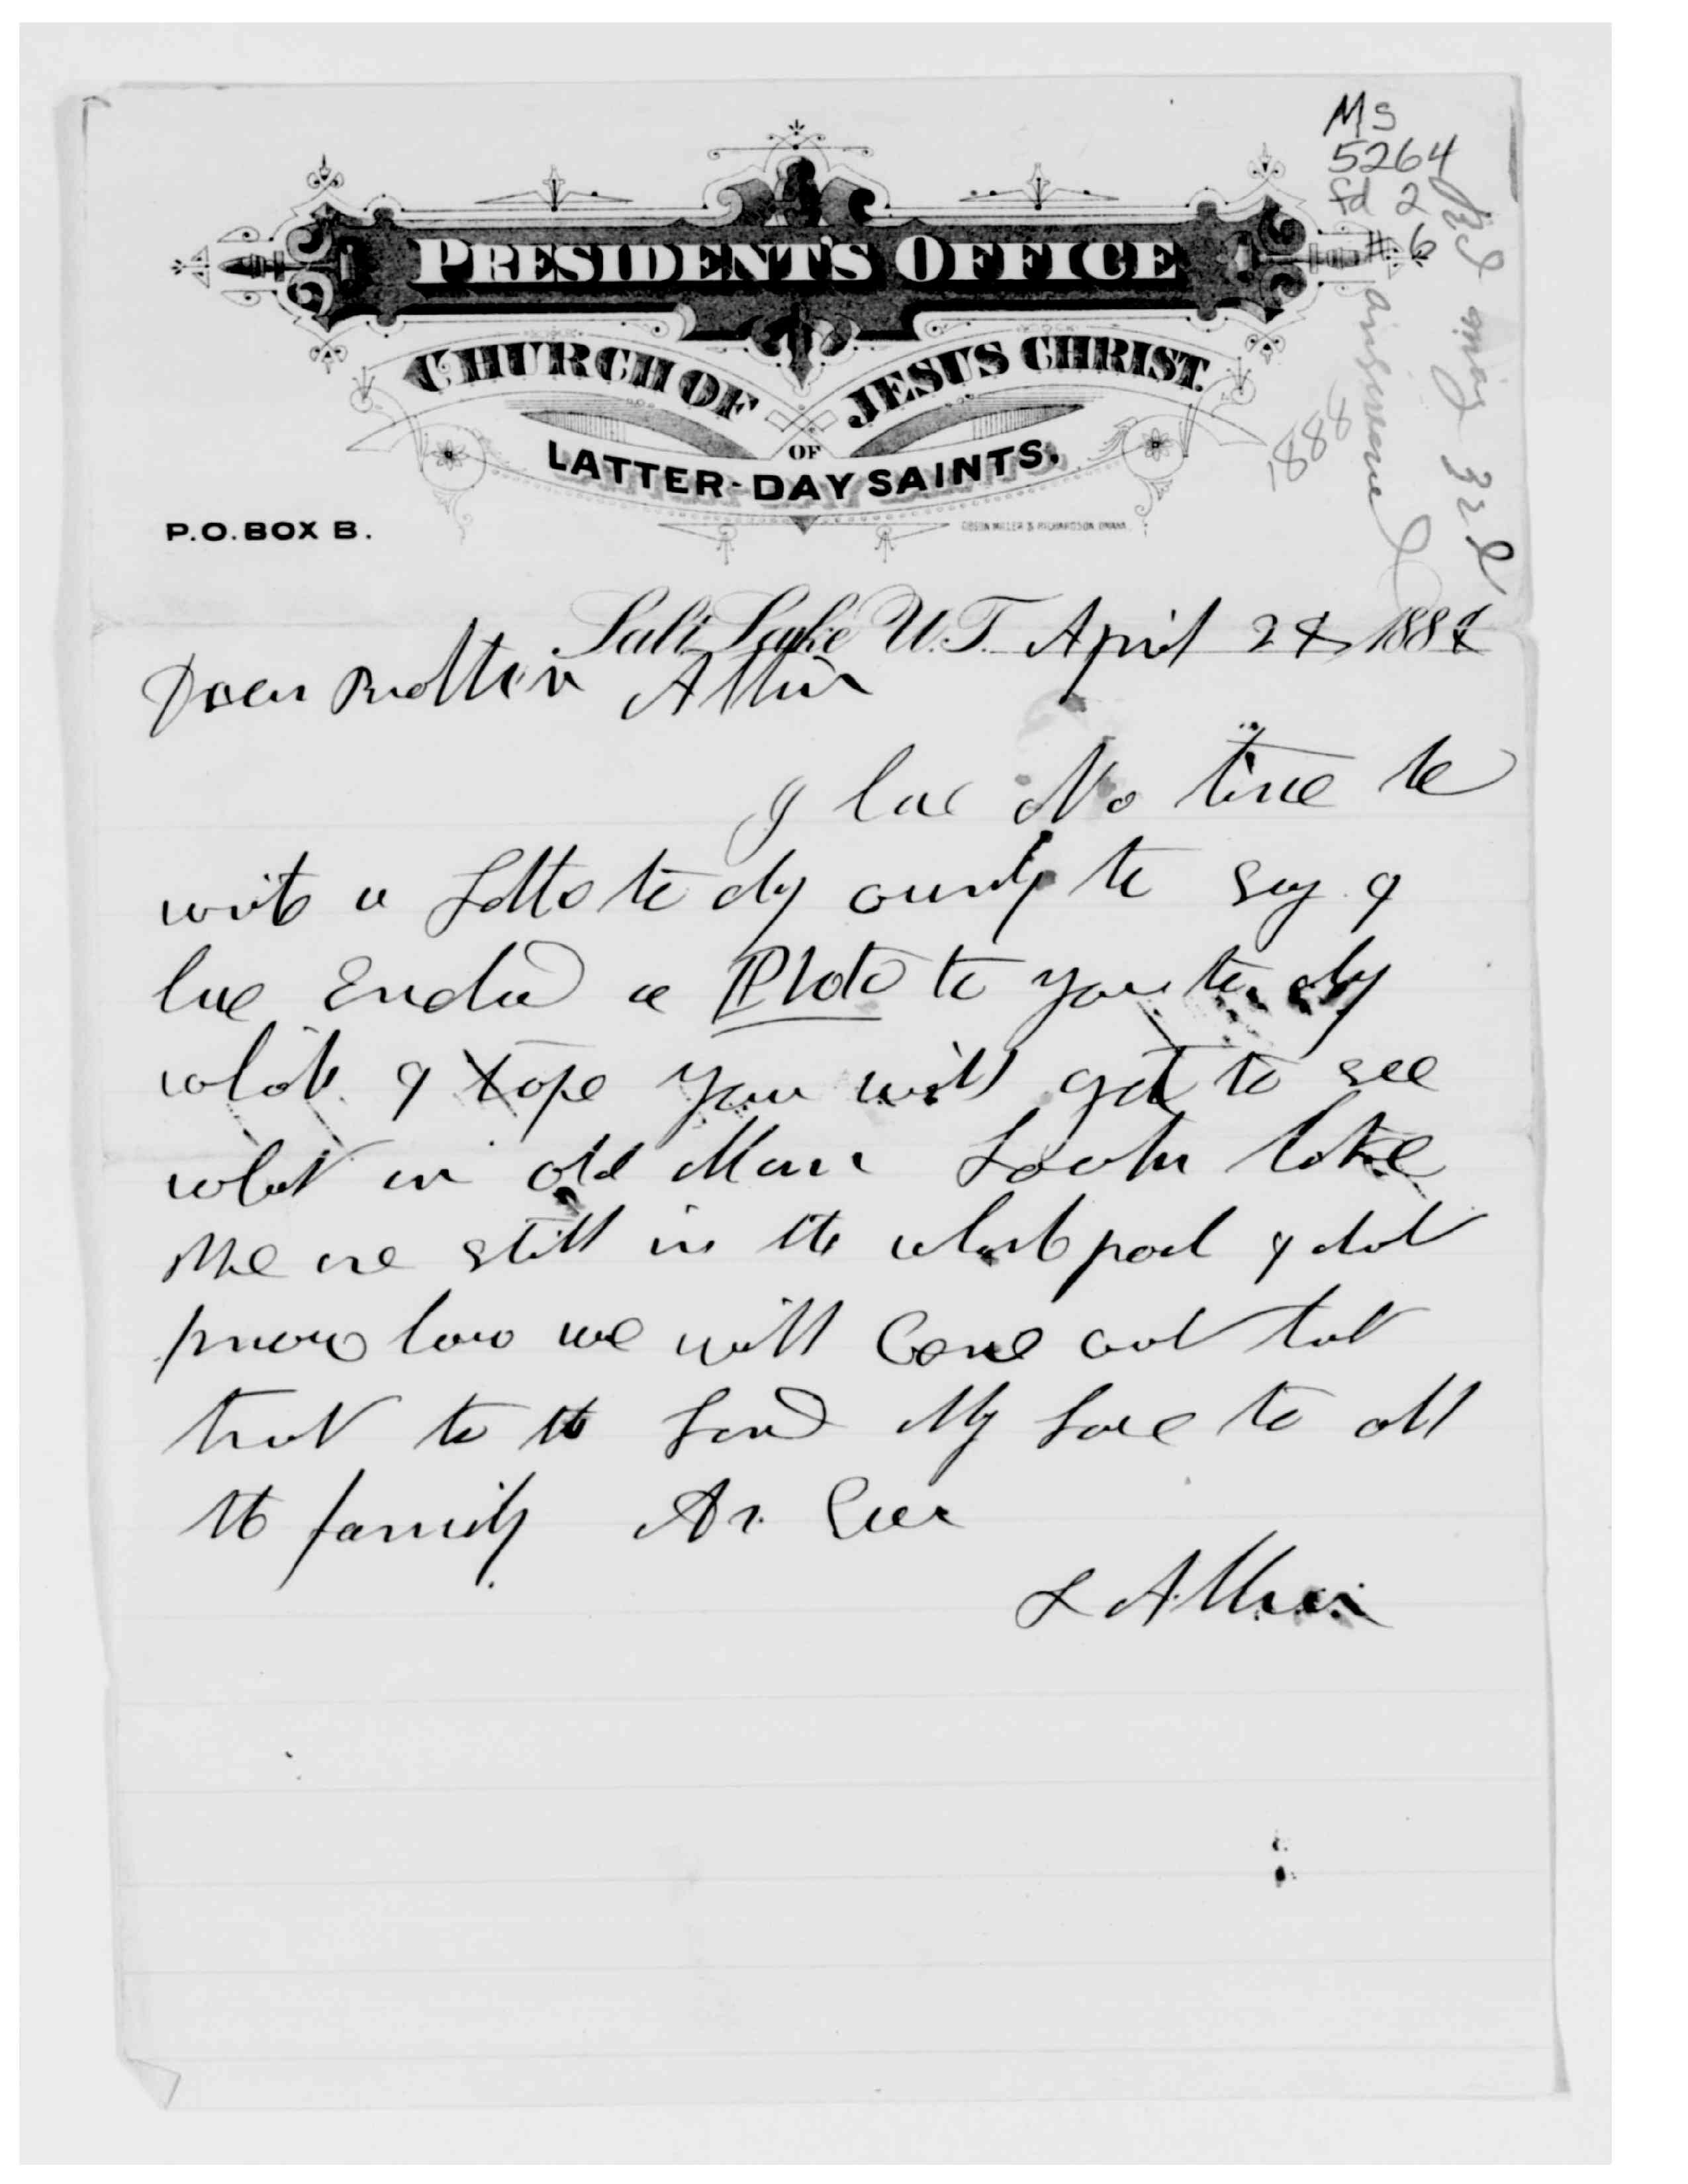 MS
5264
fd 2
#6
PRESIDENT'S OFFICE
CHURCH OF JESUS CHRIST.
OF
LATTER-DAY SAINTS.
P.O. BOX B.
1888
Salt Lake U.T. April 28 1888
Dear Brother
I have No time to
write a Letter to day only to say I
have a Photo to you to day
which I hope you will get to see
what an old Man Looks like
We are still in the whirlpool & dont
know how we will Come out but
trust to the Lord My Love to all
the family As Ever